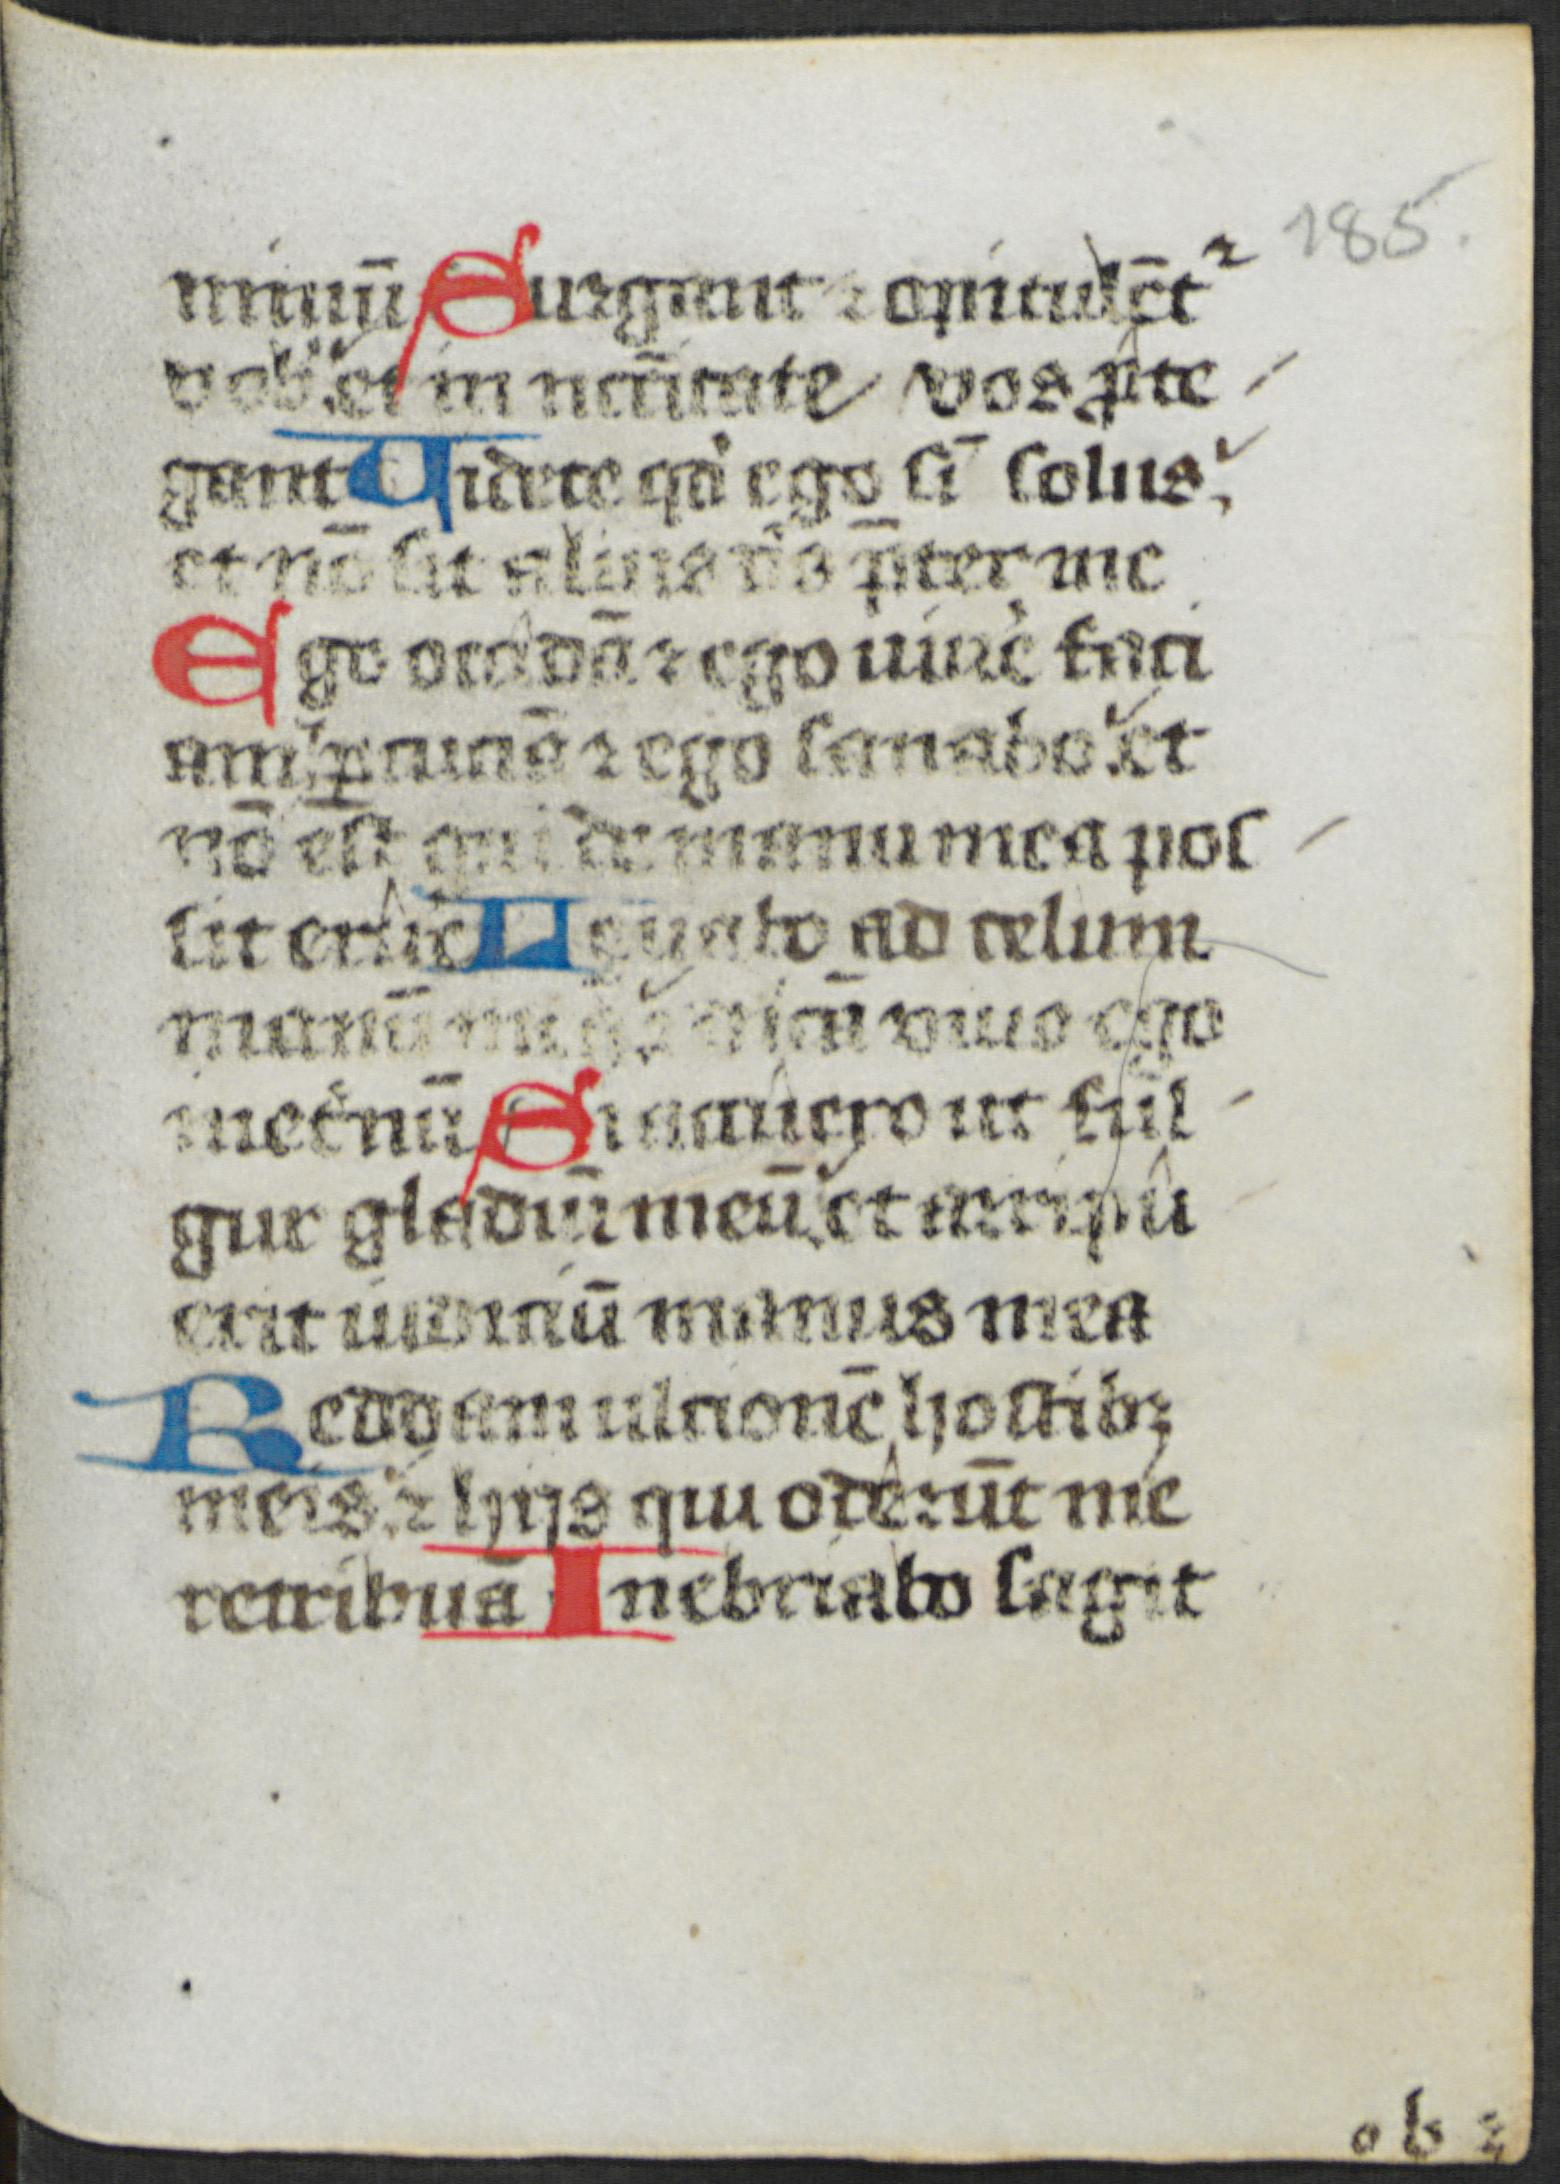 185.
minuū Surgant ⁊ opitulēt²
vob̾ et in nc̄citate vos p̱te
gant Uidete qd̾ ego sī solus
et nō sit alius de̾s p̄ter me
Ego occidā ⁊ ego uiue̾ faci
am ꝑcuciā ⁊ ego sanabo et
nō est qui de manu mea pos
sit erue̾ Leuabo ad celum
manū meā ⁊ dicā viuo ego
in et̾nū Si acuero ut ful
gur gladiū meū et arripu
erit iudiciū manus mea
Reddam ulcionē hostibꝫ
meis ⁊ hijs qui oderūt me
retribuā Inebriabo sagit
o b